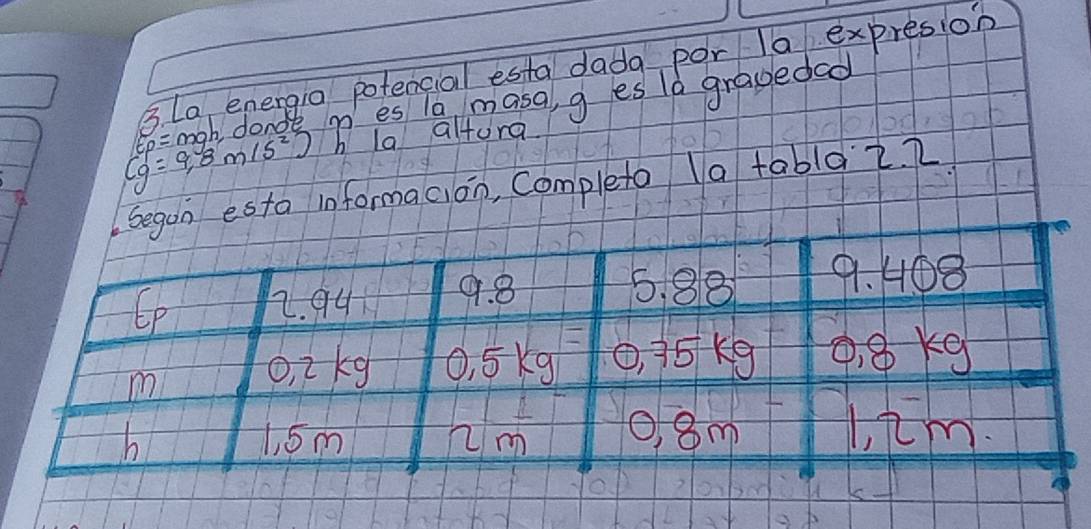 3. La energia potencial esta dada por la expresión
Ep=mgh, donde m es la masa, g es la gravedad
(g=9,8 m/s²) h la altura.
Según esta información, Completa la tabla 2.2.
Ep 2.94 9.8 5.88 9.408
m 0,2 kg 0,5 kg 0,75 kg 0,8 kg
h 1,5 m 2 m 0,8 m 1,2 m.